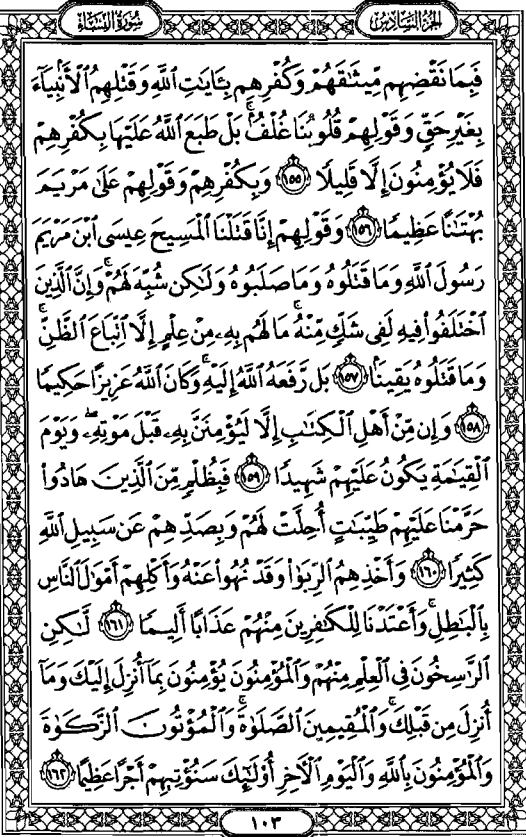 الجزء السادس
سورة النساء
فَبِمَا نَقْضِهِم مِّيثَـٰقَهُمْ وَكُفْرِهِم بِـَٔايَـٰتِ ٱللَّهِ وَقَتْلِهِمُ ٱلْأَنۢبِيَآءَ
بِغَيْرِ حَقٍّ وَقَوْلِهِمْ قُلُوبُنَا غُلْفُۢ ۚ بَلْ طَبَعَ ٱللَّهُ عَلَيْهَا بِكُفْرِهِمْ
فَلَا يُؤْمِنُونَ إِلَّا قَلِيلًا ١٥٥ وَبِكُفْرِهِمْ وَقَوْلِهِمْ عَلَىٰ مَرْيَمَ
بُهْتَـٰنًا عَظِيمًا ١٥٦ وَقَوْلِهِمْ إِنَّا قَتَلْنَا ٱلْمَسِيحَ عِيسَى ٱبْنَ مَرْيَمَ
رَسُولَ ٱللَّهِ وَمَا قَتَلُوهُ وَمَا صَلَبُوهُ وَلَـٰكِن شُبِّهَ لَهُمْ ۚ وَإِنَّ ٱلَّذِينَ
ٱخْتَلَفُوا۟ فِيهِ لَفِى شَكٍّ مِّنْهُ ۚ مَا لَهُم بِهِۦ مِنْ عِلْمٍ إِلَّا ٱتِّبَاعَ ٱلظَّنِّ ۚ
وَمَا قَتَلُوهُ يَقِينًۢا ١٥٧ بَل رَّفَعَهُ ٱللَّهُ إِلَيْهِ ۚ وَكَانَ ٱللَّهُ عَزِيزًا حَكِيمًا
١٥٨ وَإِن مِّنْ أَهْلِ ٱلْكِتَـٰبِ إِلَّا لَيُؤْمِنَنَّ بِهِۦ قَبْلَ مَوْتِهِۦ ۖ وَيَوْمَ
ٱلْقِيَـٰمَةِ يَكُونُ عَلَيْهِمْ شَهِيدًا ١٥٩ فَبِظُلْمٍ مِّنَ ٱلَّذِينَ هَادُوا۟
حَرَّمْنَا عَلَيْهِمْ طَيِّبَـٰتٍ أُحِلَّتْ لَهُمْ وَبِصَدِّهِمْ عَن سَبِيلِ ٱللَّهِ
كَثِيرًا ١٦٠ وَأَخْذِهِمُ ٱلرِّبَوٰا۟ وَقَدْ نُهُوا۟ عَنْهُ وَأَكْلِهِمْ أَمْوَٰلَ ٱلنَّاسِ
بِٱلْبَـٰطِلِ ۚ وَأَعْتَدْنَا لِلْكَـٰفِرِينَ مِنْهُمْ عَذَابًا أَلِيمًا ١٦١ لَّـٰكِنِ
ٱلرَّٰسِخُونَ فِى ٱلْعِلْمِ مِنْهُمْ وَٱلْمُؤْمِنُونَ يُؤْمِنُونَ بِمَآ أُنزِلَ إِلَيْكَ وَمَآ
أُنزِلَ مِن قَبْلِكَ ۚ وَٱلْمُقِيمِينَ ٱلصَّلَوٰةَ ۚ وَٱلْمُؤْتُونَ ٱلزَّكَوٰةَ
وَٱلْمُؤْمِنُونَ بِٱللَّهِ وَٱلْيَوْمِ ٱلْـَٔاخِرِ أُو۟لَـٰٓئِكَ سَنُؤْتِيهِمْ أَجْرًا عَظِيمًا ١٦٢
١٠٣